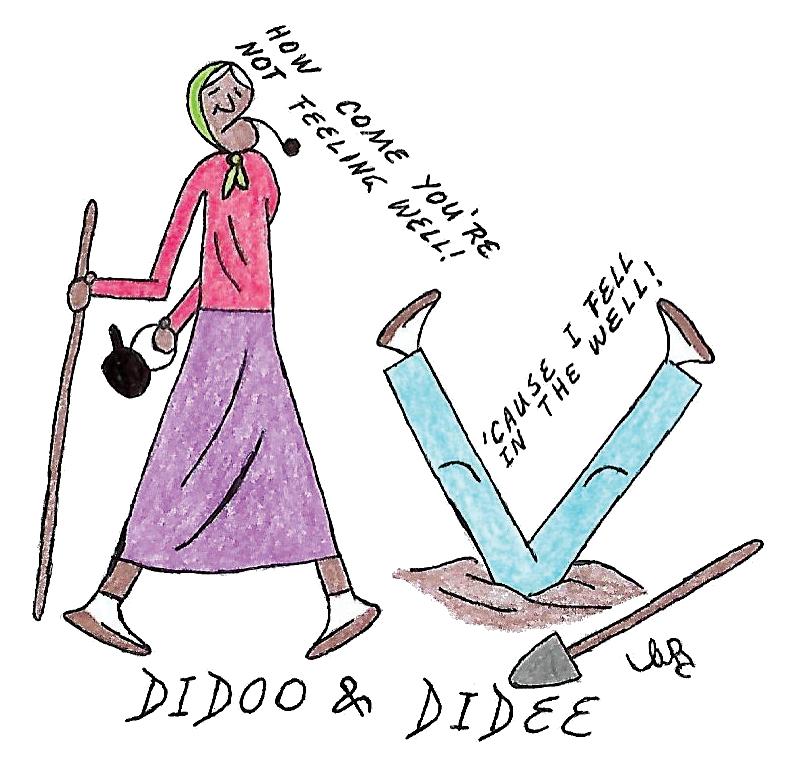 HOW COME YOU'RE
NOT FEELING WELL!
'CAUSE I FELL
IN THE WELL!
DIDOO & DIDEE